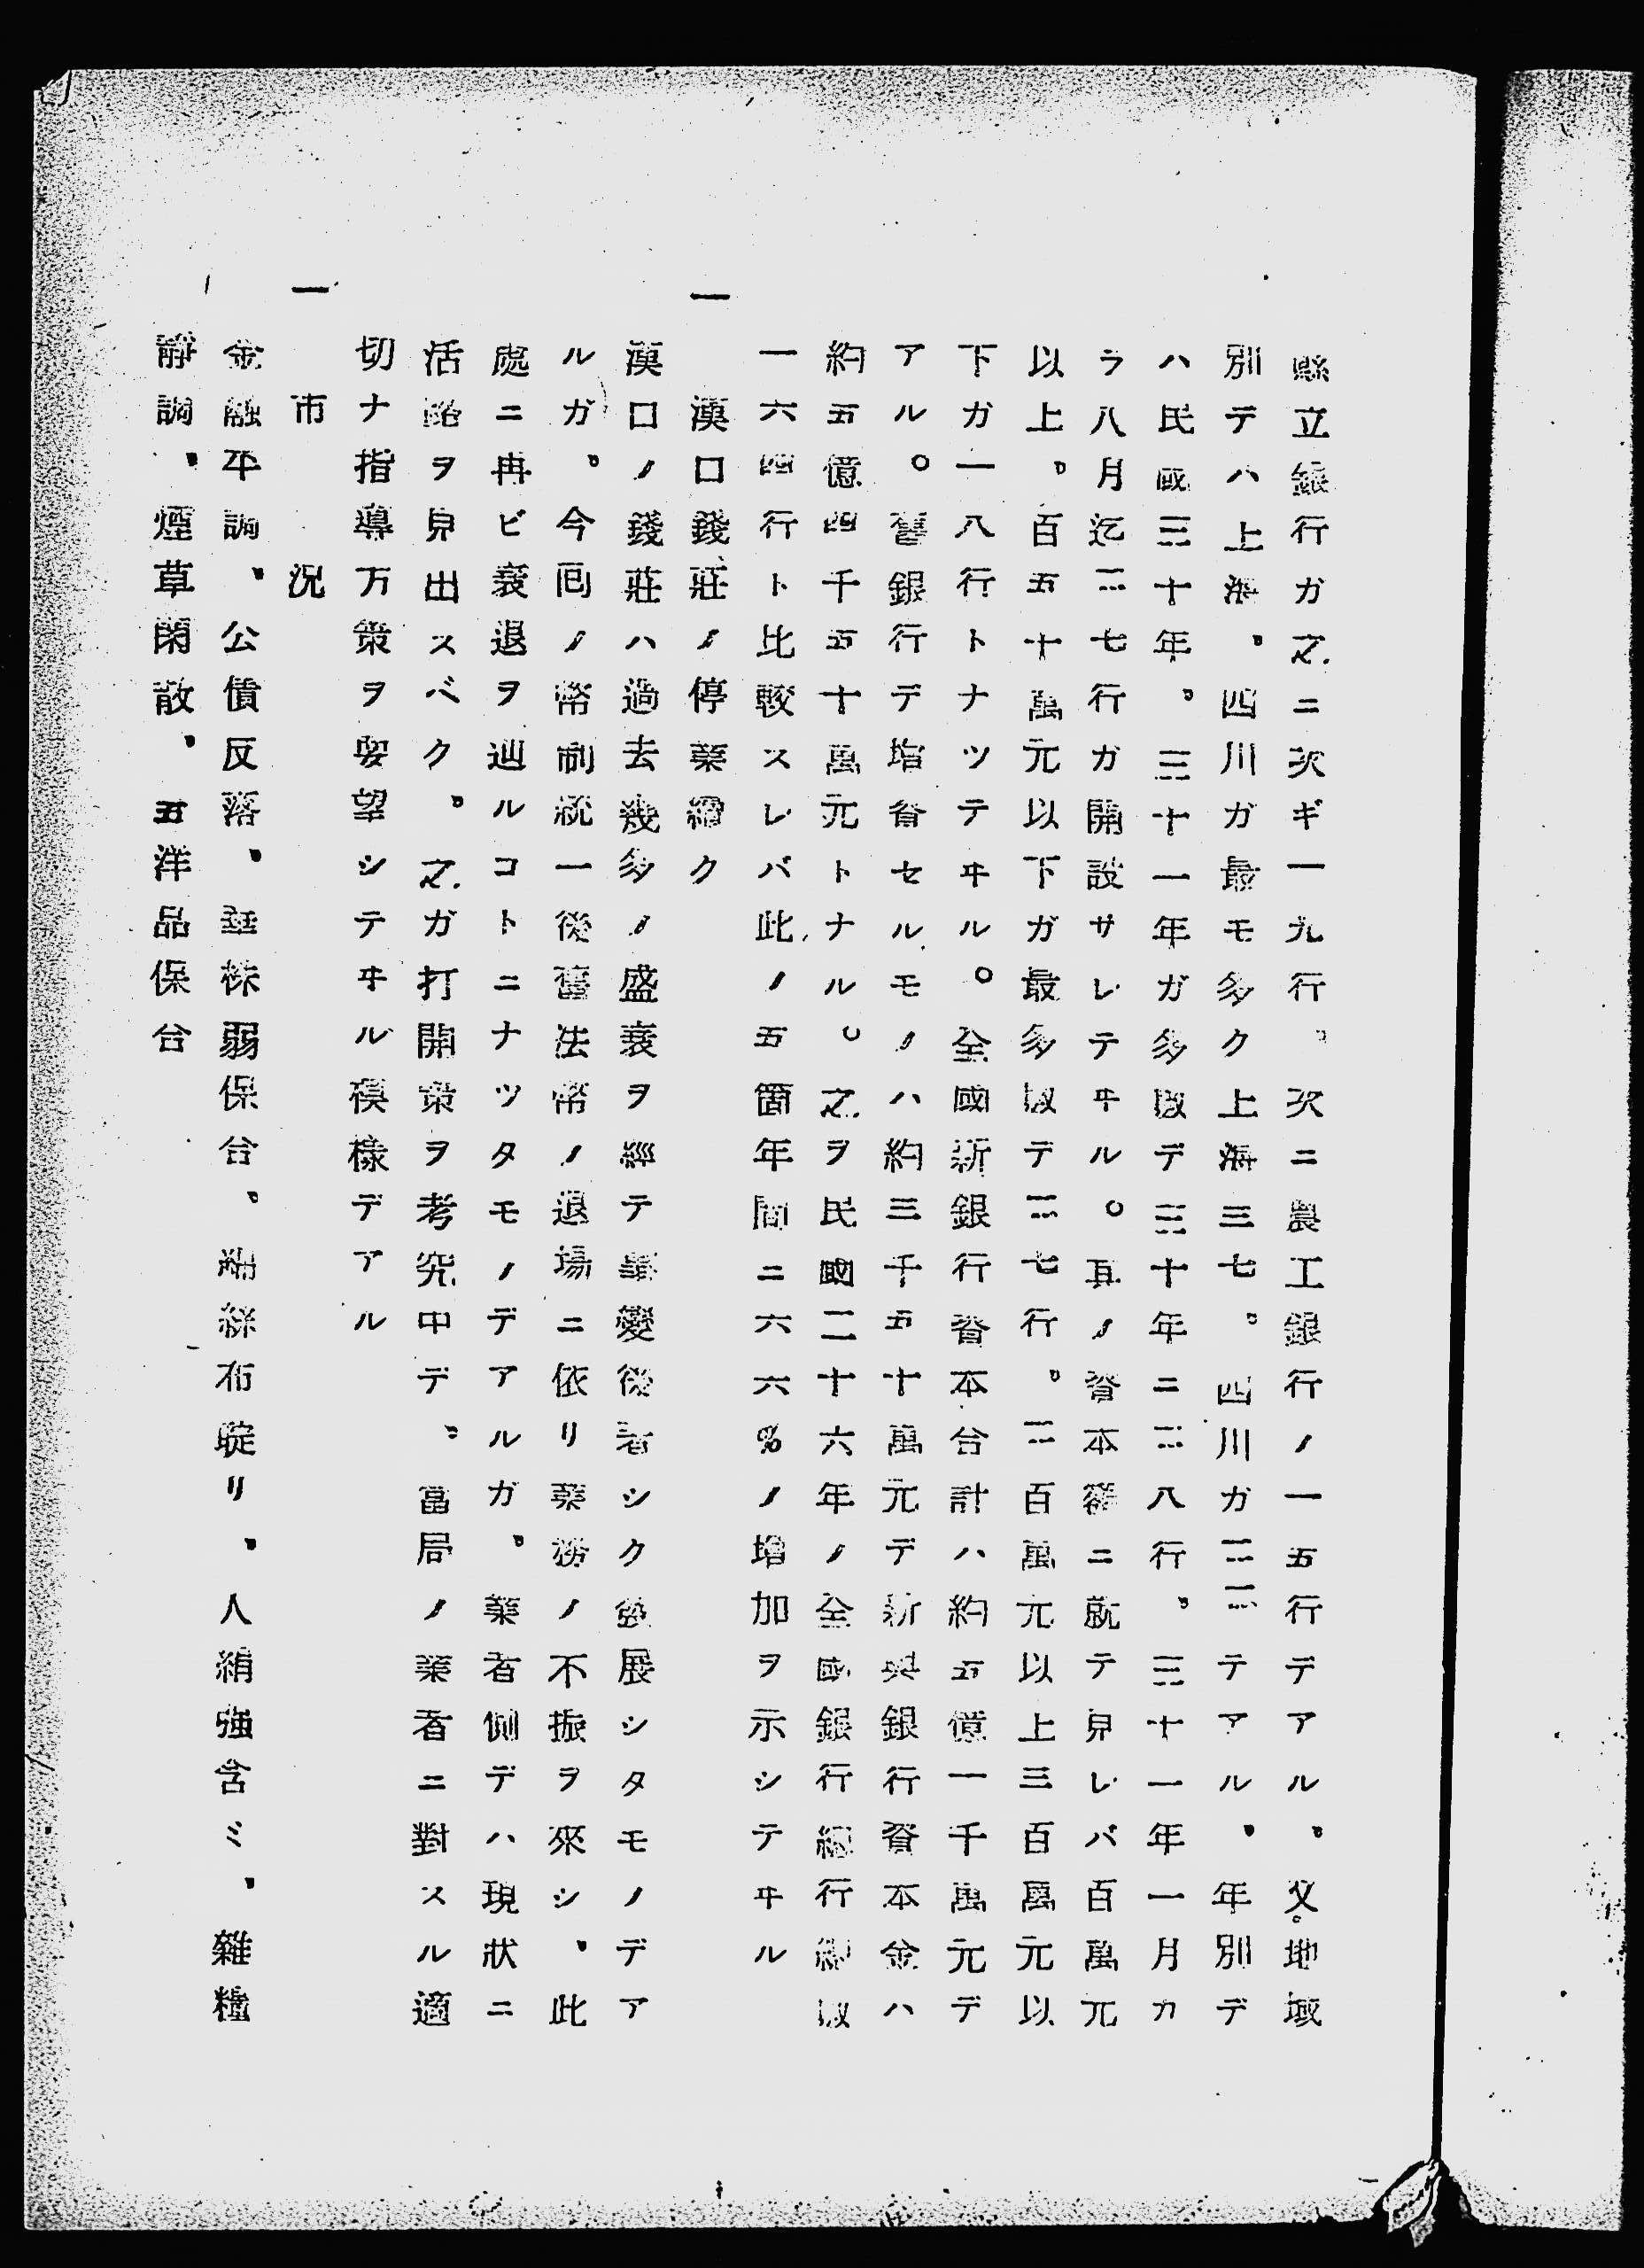 縣立銀行ガ之ニ次ギ一九行、次ニ農工銀行ノ一五行デアル、又地域
別テハ上海、四川ガ最モ多ク上海三七、四川ガ二二テアル、年別デ
ハ民國三十年、三十一年ガ多數デ三十年ニ二八行、三十一年一月カ
ラ八月迄二七行ガ開設サレテヰル。其ノ資本額ニ就テ見レバ百萬元
以上、百五十萬元以下ガ最多數テ二七行、二百萬元以上三百萬元以
下ガ一八行トナツテヰル。全國新銀行資本合計ハ約五億一千萬元デ
アル。舊銀行デ增資セルモノハ約三千五十萬元デ新舊銀行資本金ハ
約五億四千五十萬元トナル。之ヲ民國二十六年ノ全國銀行總行總數
一六四行ト比較スレバ此ノ五箇年間ニ六六%ノ增加ヲ示シテヰル
一 漢口錢莊ノ停業續ク
漢口ノ錢莊ハ過去幾多ノ盛衰ヲ經テ事變後著シク發展シタモノデア
ルガ、今回ノ幣制統一後舊法幣ノ退場ニ依リ業務ノ不振ヲ來シ、此
處ニ再ビ衰退ヲ辿ルコトニナツタモノデアルガ、業者側デハ現狀ニ
活路ヲ見出スベク、之ガ打開策ヲ考究中デ、當局ノ業者ニ對スル適
切ナ指導方策ヲ要望シテヰル模樣デアル
一 市況
金融平調、公債反落、華株弱保合、綿絲布碇リ、人絹強含ミ、雜糧
靜調、煙草閑散、五洋品保合